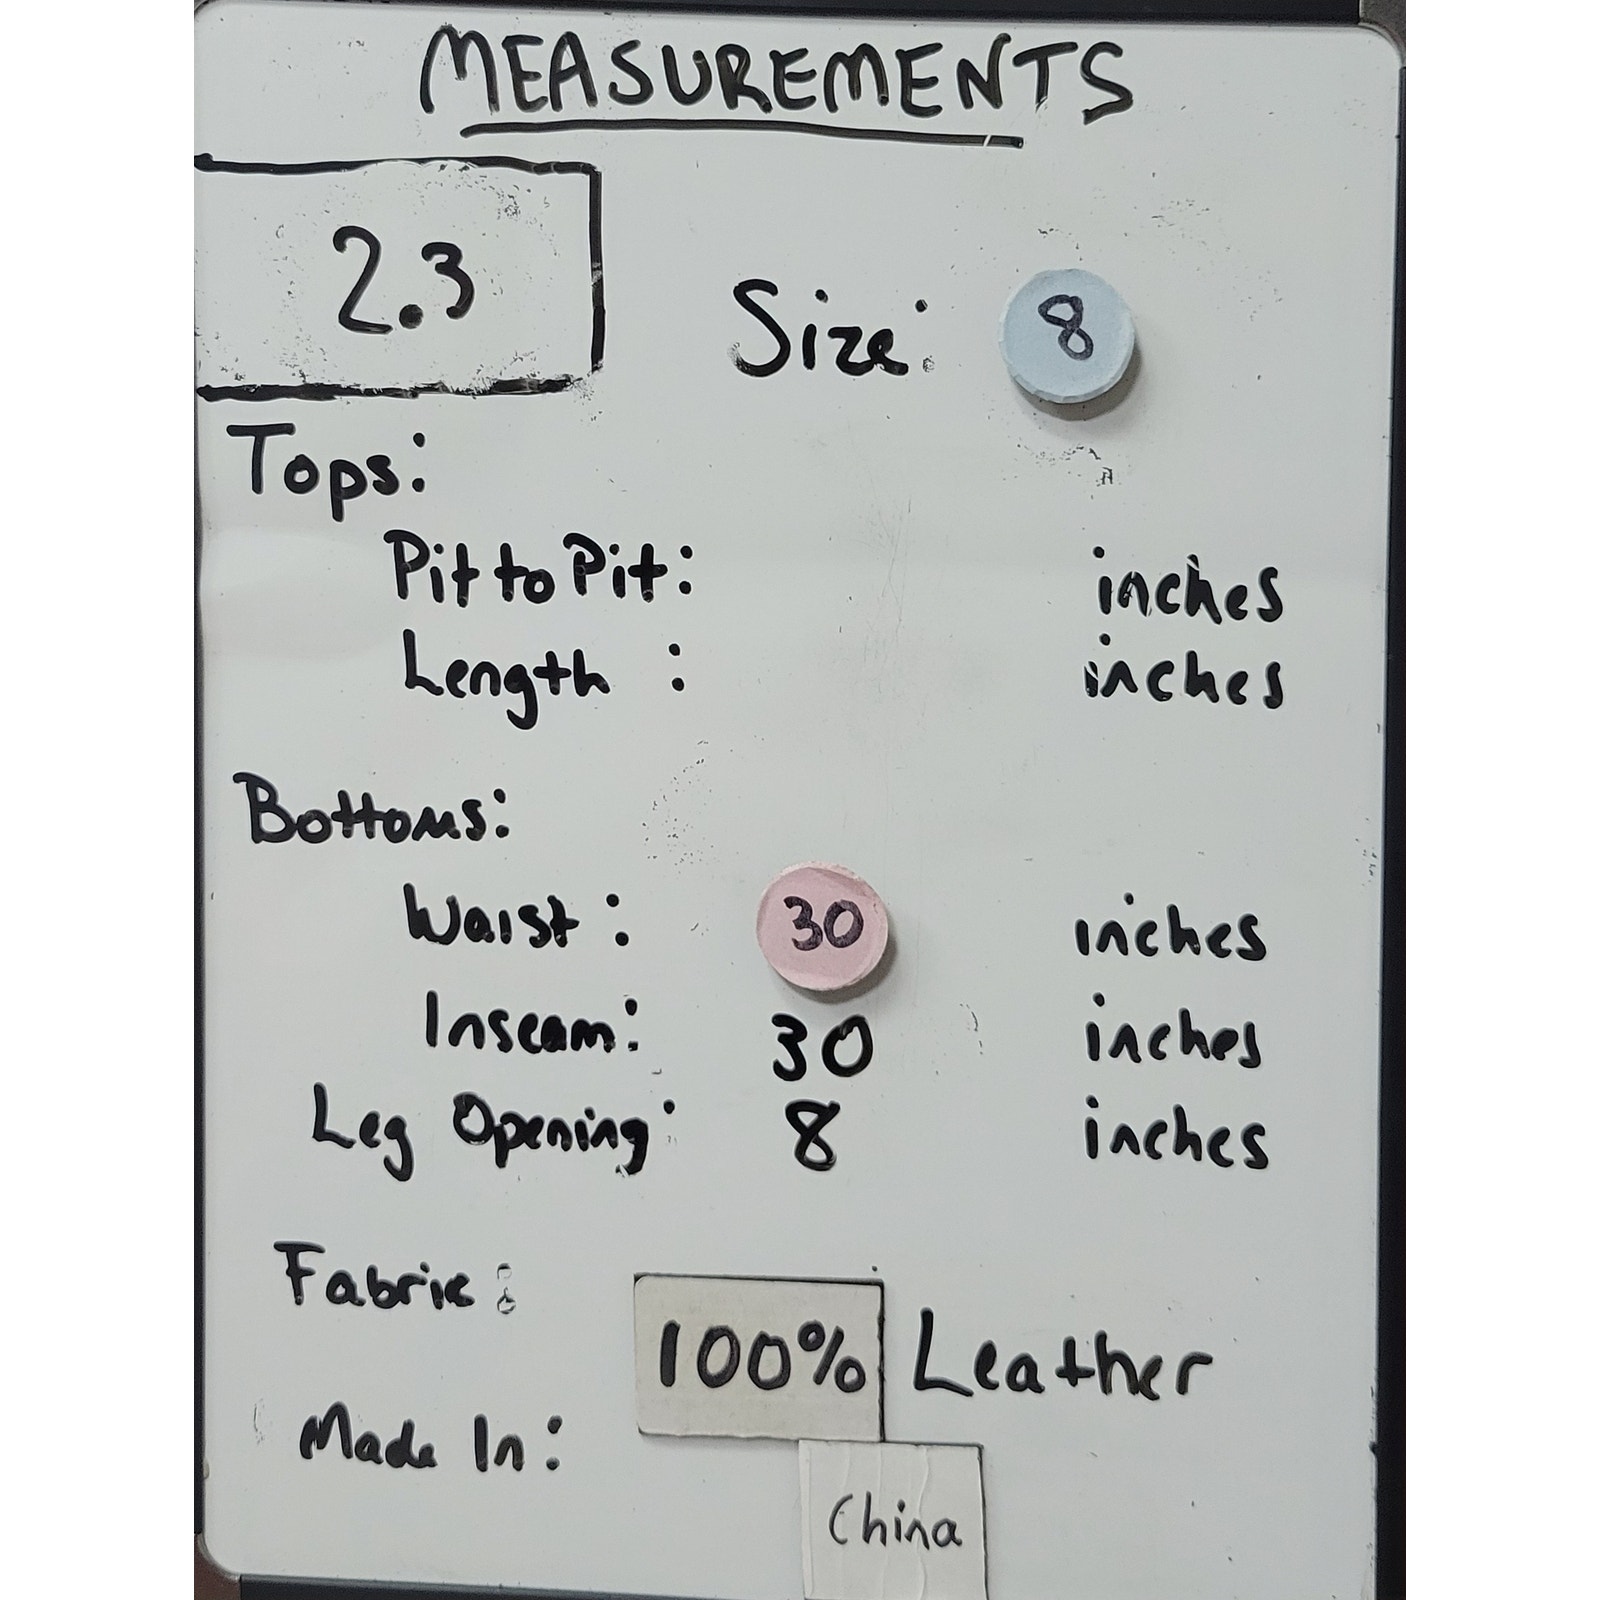 MEASUREMENTS
2.3
Size: 8
Tops:
Pit to Pit: inches
Length : inches
Bottoms:
Waist : 30 inches
Inseam: 30 inches
Leg Opening: 8 inches
Fabric:
100% Leather
Made In:
China